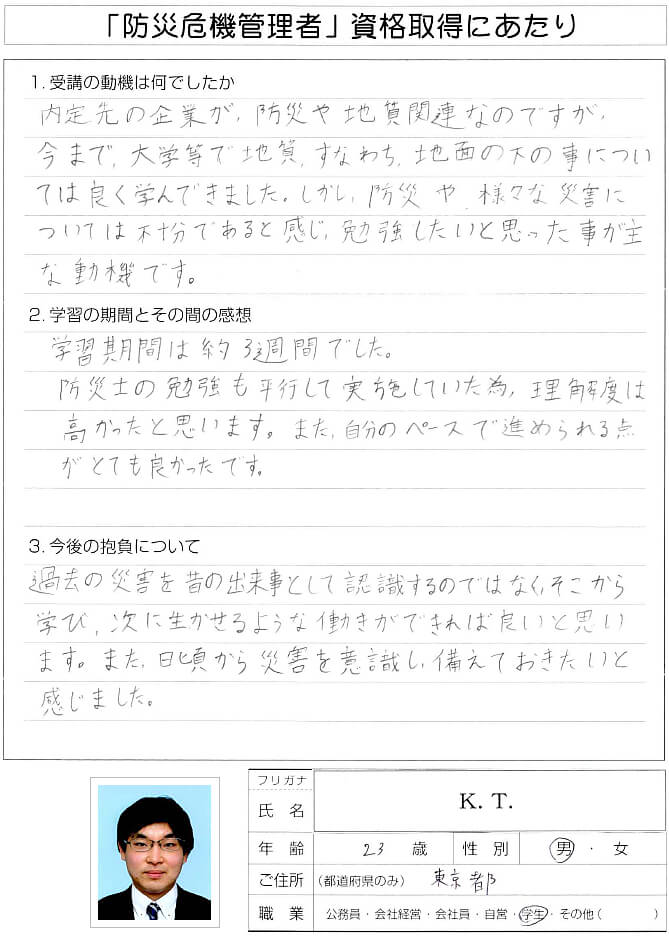 「防災危機管理者」資格取得にあたり
1. 受講の動機は何でしたか
内定先の企業が、防災や地質関連なのですが、
今まで、大学等で地質、すなわち、地面の下の事につい
ては良く学んできました。しかし、防災や、様々な災害に
ついては不十分であると感じ、勉強したいと思った事が主
な動機です。
2. 学習の期間とその間の感想
学習期間は約3週間でした。
防災士の勉強も平行して実施していた為、理解度は
高かったと思います。また、自分のペースで進められる点
がとても良かったです。
3. 今後の抱負について
過去の災害を昔の出来事として認識するのではなく、そこから
学び、次に生かせるような働きができれば良いと思い
ます。また、日頃から災害を意識し、備えておきたいと
感じました。
フリガナ
氏 名 K. T.
年 齢 23 歳 性 別 男 ・ 女
ご住所 (都道府県のみ) 東京都
職 業 公務員・会社経営・会社員・自営・学生・その他( )